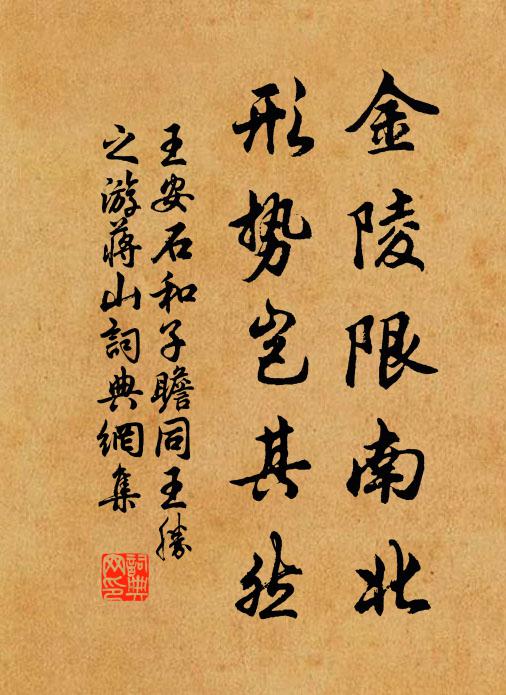 金陵限南北
形势岂其然
王安石和子瞻同王勝
之游蒋山詞典網集
詞典
网印